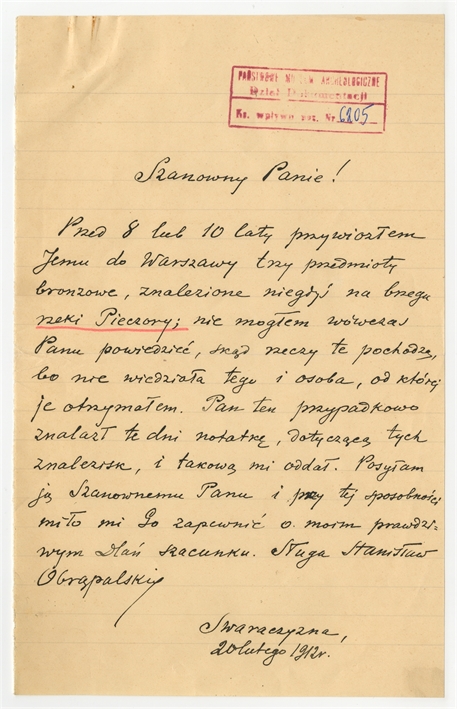 PAŃSTWOWE MUZEUM ARCHEOLOGICZNE
Dział Dokumentacji
Ks. wpływu zał. Nr. 6205
Szanowny Panie!
Przed 8 lub 10 laty przywiozłem
Jemu do Warszawy trzy przedmioty
bronzowe, znalezione niegdyś na brzegu
rzeki Pieczory; nie mogłem wówczas
Panu powiedzieć, skąd rzeczy te pochodzą,
bo nie wiedziała tego i osoba, od której
je otrzymałem. Pan ten przypadkowo
znalazł te dni notatkę, dotyczącą tych
znalezisk, i takową mi oddał. Posyłam
ją Szanownemu Panu i przy tej sposobności
miło mi Go zapewnić o moim prawdzi-
wym Dlań szacunku. Sługa Stanisław
Obrąpalski
Swaraczyzna,
20 lutego 1912 r.